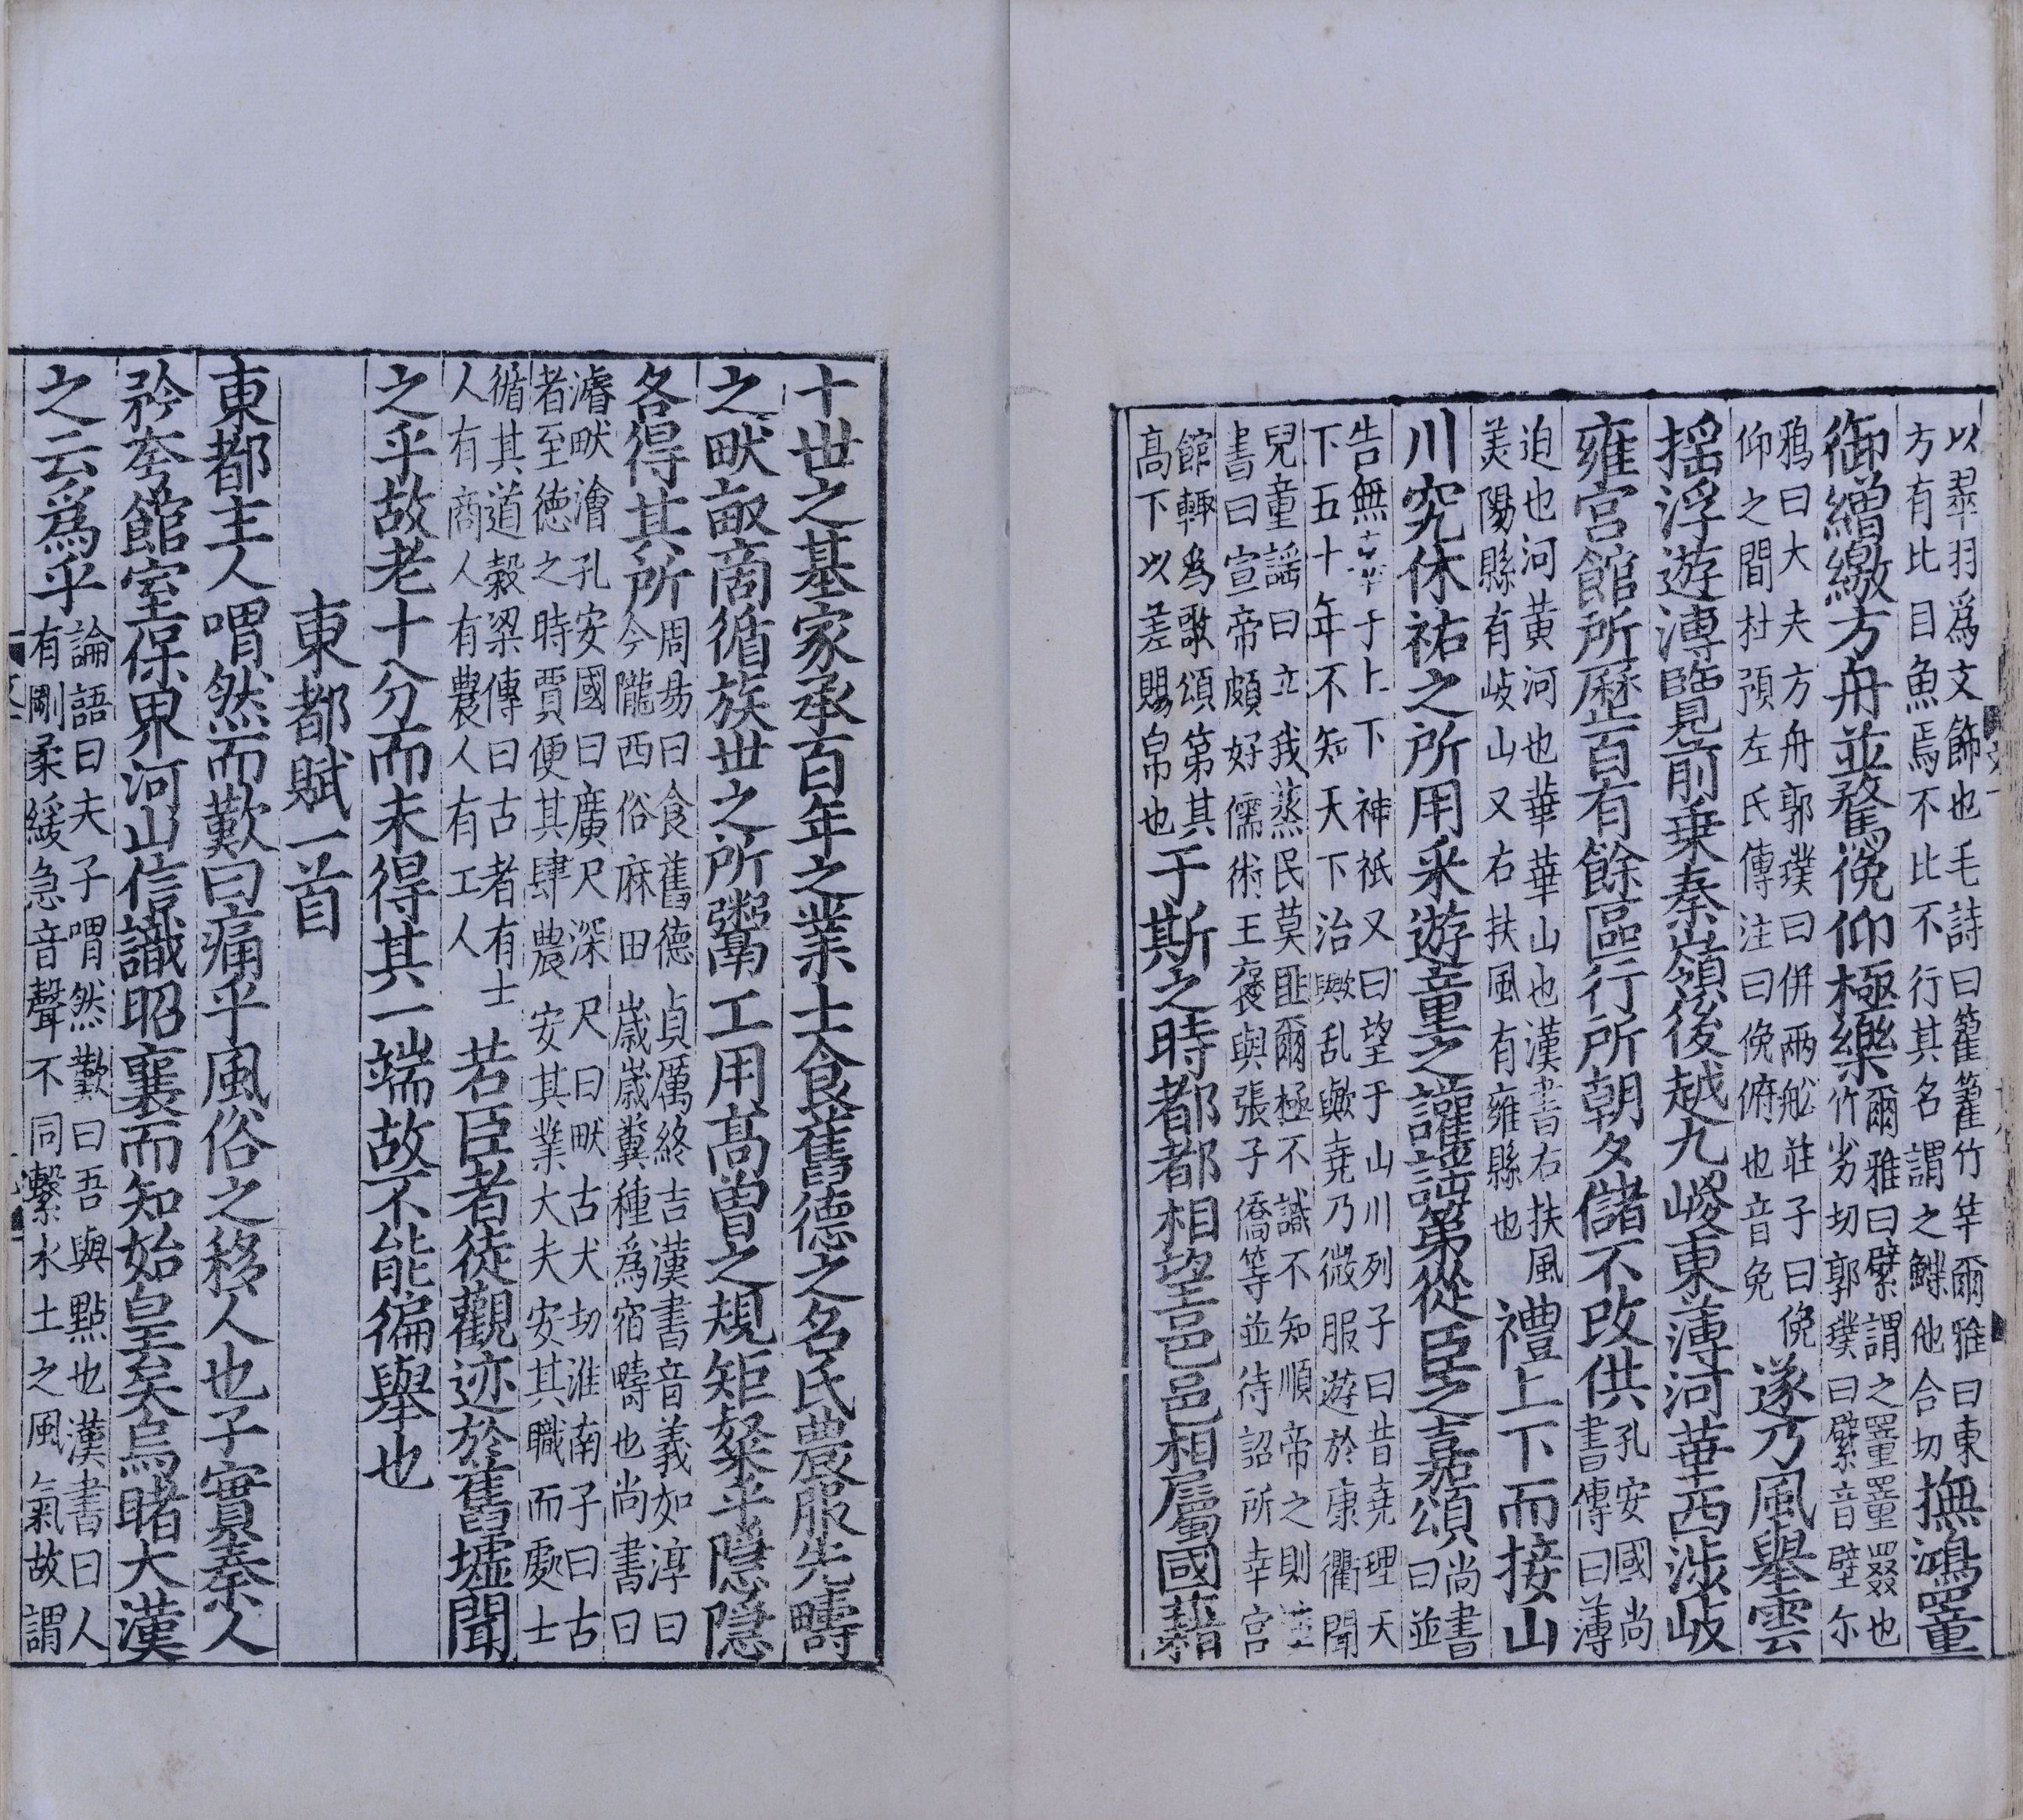 以翠羽爲文飾也毛詩曰籊籊竹竿爾雅曰東
方有比目魚焉不比不行其名謂之鰈他合切撫鴻罿
御繒繳方舟並騖俛仰極樂爾雅曰繴謂之罿罿罬也
竹劣切郭璞曰繴音壁尒
鴉曰大夫方舟郭璞曰併兩舩莊子曰俛
仰之間杜預左氏傳注曰俛俯也音免遂乃風舉雲
揺浮遊溥覽前乗秦嶺後越九嵕東薄河華西涉岐
雍宮館所歷百有餘區行所朝夕儲不改供孔安國尚
書傳曰薄
迫也河黃河也華華山也漢書右扶風
美陽縣有岐山又右扶風有雍縣也禮上下而接山
川究休祐之所用采遊童之讙謡第從臣之嘉頌尚書
曰並
告無辜于上下神祇又曰望于山川列子曰昔堯理天
下五十年不知天下治歟乱歟堯乃微服遊於康衢聞
兒童謡曰立我蒸民莫匪爾極不識不知順帝之則漢
書曰宣帝頗好儒術王襃與張子僑等並待詔所幸宮
館輙爲歌頌第其
高下以差賜帛也于斯之時都都相望邑邑相屬國藉
十世之基家承百年之業士食舊德之名氏農服先疇
之畎畝商循族世之所鬻工用髙曾之規矩粲乎隠隠
各得其所周易曰食舊德貞厲終吉漢書音義如淳曰
今隴西俗麻田歲歲糞種爲宿疇也尚書曰
濬畎澮孔安國曰廣尺深尺曰畎古犬切淮南子曰古
者至德之時賈便其肆農安其業大夫安其職而處士
循其道穀梁傳曰古者有士
人有商人有農人有工人若臣者徒觀迹於舊墟聞
之乎故老十分而未得其一端故不能徧舉也
東都賦一首
東都主人喟然而歎曰痛乎風俗之移人也子實秦人
矜夸館室保界河山信識昭襄而知始皇矣烏睹大漢
之云爲乎論語曰夫子喟然歎曰吾與點也漢書曰人
有剛柔緩急音聲不同繫水土之風氣故謂